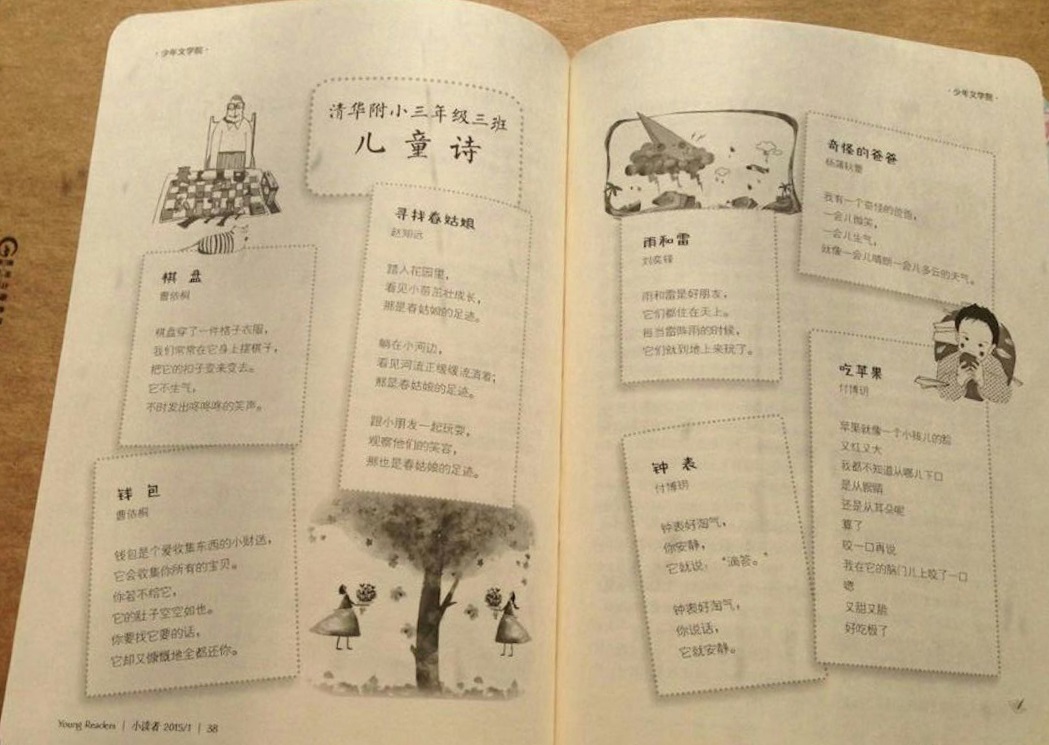 ·少年文学院·
清华附小三年级三班
儿童诗
寻找春姑娘
赵知远
踏入花园里，
看见小苗茁壮成长，
那是春姑娘的足迹。
躺在小河边，
看见河流正缓缓流淌着；
那是春姑娘的足迹。
跟小朋友一起玩耍，
观察他们的笑容，
那也是春姑娘的足迹。
棋盘
曹依桐
棋盘穿了一件格子衣服，
我们常常在它身上摆棋子，
把它的扣子变来变去。
它不生气，
不时发出咚咚咚的笑声。
钱包
曹依桐
钱包是个爱收集东西的小财迷，
它会收集你所有的宝贝。
你若不给它，
它的肚子空空如也。
你要找它要的话，
它却又慷慨地全都还你。
Young Readers | 小读者 2015/1 | 38
·少年文学院·
雨和雷
刘奕锋
雨和雷是好朋友，
它们都住在天上。
每当雷阵雨的时候，
它们就到地上来玩了。
奇怪的爸爸
我有一个奇怪的爸爸，
一会儿微笑，
一会儿生气，
就像一会儿晴朗一会儿多云的天气。
钟表
付博玥
钟表好淘气，
你安静，
它就说：“滴答。”
钟表好淘气，
你说话，
它就安静。
吃苹果
付博玥
苹果就像一个小孩儿的脸
又红又大
我都不知道从哪儿下口
是从眼睛
还是从耳朵呢
算了
咬一口再说
我在它的脑门儿上咬了一口
嗯
又甜又脆
好吃极了